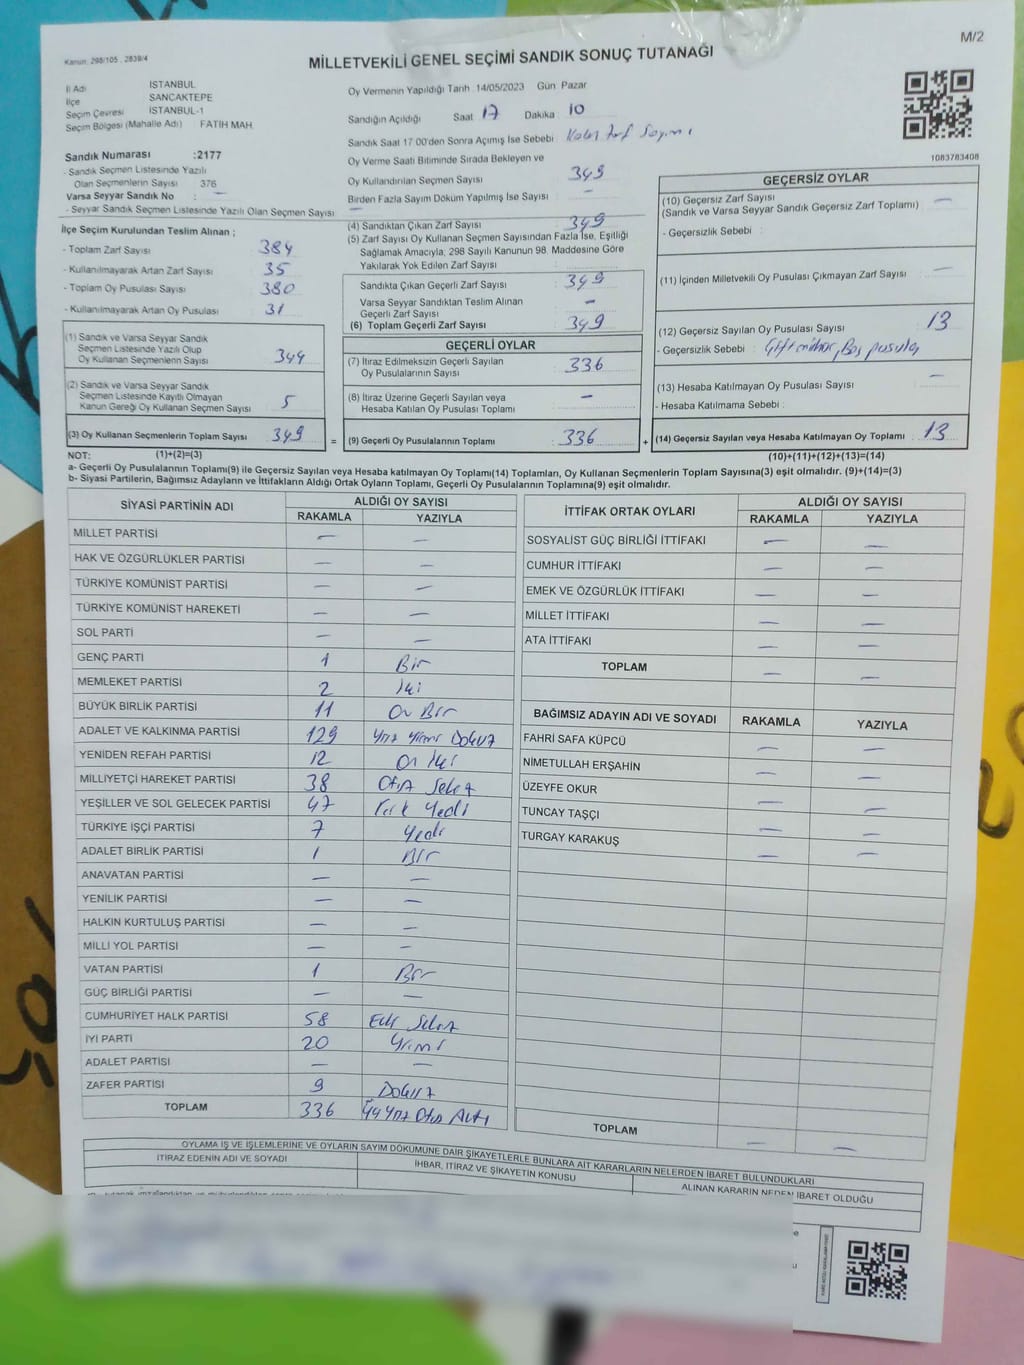 M/2
Kanun: 298/105 , 2839/4
MİLLETVEKİLİ GENEL SEÇİMİ SANDIK SONUÇ TUTANAĞI
İl Adı İSTANBUL
İlçe SANCAKTEPE
Seçim Çevresi İSTANBUL-1
Seçim Bölgesi (Mahalle Adı) : FATİH MAH.
Oy Vermenin Yapıldığı Tarih :14/05/2023 Gün: Pazar
Sandığın Açıldığı Saat : 17 Dakika : 10
Sandık Saat 17.00'den Sonra Açılmış İse Sebebi : Zarf Sayımı
Sandık Numarası :2177
- Sandık Seçmen Listesinde Yazılı
Olan Seçmenlerin Sayısı : 376
Varsa Seyyar Sandık No : —
- Seyyar Sandık Seçmen Listesinde Yazılı Olan Seçmen Sayısı : —
Oy Verme Saati Bitiminde Sırada Bekleyen ve
Oy Kullandırılan Seçmen Sayısı : 349
Birden Fazla Sayım Döküm Yapılmış İse Sayısı : —
1083783408
İlçe Seçim Kurulundan Teslim Alınan ;
- Toplam Zarf Sayısı : 384
- Kullanılmayarak Artan Zarf Sayısı : 35
- Toplam Oy Pusulası Sayısı : 380
- Kullanılmayarak Artan Oy Pusulası : 31
(1) Sandık ve Varsa Seyyar Sandık
Seçmen Listesinde Yazılı Olup
Oy Kullanan Seçmenlerin Sayısı : 344
(2) Sandık ve Varsa Seyyar Sandık
Seçmen Listesinde Kayıtlı Olmayan
Kanun Gereği Oy Kullanan Seçmen Sayısı : 5
(3) Oy Kullanan Seçmenlerin Toplam Sayısı : 349
(4) Sandıktan Çıkan Zarf Sayısı : 349
(5) Zarf Sayısı Oy Kullanan Seçmen Sayısından Fazla İse, Eşitliği
Sağlamak Amacıyla; 298 Sayılı Kanunun 98. Maddesine Göre
Yakılarak Yok Edilen Zarf Sayısı :
Sandıkta Çıkan Geçerli Zarf Sayısı : 349
Varsa Seyyar Sandıktan Teslim Alınan
Geçerli Zarf Sayısı : —
(6) Toplam Geçerli Zarf Sayısı : 349
GEÇERLİ OYLAR
(7) İtiraz Edilmeksizin Geçerli Sayılan
Oy Pusulalarının Sayısı : 336
(8) İtiraz Üzerine Geçerli Sayılan veya
Hesaba Katılan Oy Pusulası Toplamı : —
= (9) Geçerli Oy Pusulalarının Toplamı : 336
GEÇERSİZ OYLAR
(10) Geçersiz Zarf Sayısı : —
(Sandık ve Varsa Seyyar Sandık Geçersiz Zarf Toplamı)
- Geçersizlik Sebebi :
(11) İçinden Milletvekili Oy Pusulası Çıkmayan Zarf Sayısı : —
(12) Geçersiz Sayılan Oy Pusulası Sayısı : 13
- Geçersizlik Sebebi : Çift mühür, Boş pusula
(13) Hesaba Katılmayan Oy Pusulası Sayısı : —
- Hesaba Katılmama Sebebi :
+ (14) Geçersiz Sayılan veya Hesaba Katılmayan Oy Toplamı : 13
NOT: (1)+(2)=(3) (10)+(11)+(12)+(13)=(14)
a- Geçerli Oy Pusulalarının Toplamı(9) ile Geçersiz Sayılan veya Hesaba katılmayan Oy Toplamı(14) Toplamları, Oy Kullanan Seçmenlerin Toplam Sayısına(3) eşit olmalıdır. (9)+(14)=(3)
b- Siyasi Partilerin, Bağımsız Adayların ve İttifakların Aldığı Ortak Oyların Toplamı, Geçerli Oy Pusulalarının Toplamına(9) eşit olmalıdır.
SİYASİ PARTİNİN ADI ALDIĞI OY SAYISI
RAKAMLA YAZIYLA
MİLLET PARTİSİ — —
HAK VE ÖZGÜRLÜKLER PARTİSİ — —
TÜRKİYE KOMÜNİST PARTİSİ — —
TÜRKİYE KOMÜNİST HAREKETİ — —
SOL PARTİ — —
GENÇ PARTİ 1 Bir
MEMLEKET PARTİSİ 2 İki
BÜYÜK BİRLİK PARTİSİ 11 On Bir
ADALET VE KALKINMA PARTİSİ 129 Yüz Yirmi Dokuz
YENİDEN REFAH PARTİSİ 12 On İki
MİLLİYETÇİ HAREKET PARTİSİ 38 Otuz Sekiz
YEŞİLLER VE SOL GELECEK PARTİSİ 47 Kırk Yedi
TÜRKİYE İŞÇİ PARTİSİ 7 Yedi
ADALET BİRLİK PARTİSİ 1 Bir
ANAVATAN PARTİSİ — —
YENİLİK PARTİSİ — —
HALKIN KURTULUŞ PARTİSİ — —
MİLLİ YOL PARTİSİ — —
VATAN PARTİSİ 1 Bir
GÜÇ BİRLİĞİ PARTİSİ — —
CUMHURİYET HALK PARTİSİ 58 Elli Sekiz
İYİ PARTİ 20 Yirmi
ADALET PARTİSİ — —
ZAFER PARTİSİ 9 Dokuz
TOPLAM 336 Üç Yüz Otuz Altı
İTTİFAK ORTAK OYLARI ALDIĞI OY SAYISI
RAKAMLA YAZIYLA
SOSYALİST GÜÇ BİRLİĞİ İTTİFAKI — —
CUMHUR İTTİFAKI — —
EMEK VE ÖZGÜRLÜK İTTİFAKI — —
MİLLET İTTİFAKI — —
ATA İTTİFAKI — —
TOPLAM — —
BAĞIMSIZ ADAYIN ADI VE SOYADI RAKAMLA YAZIYLA
FAHRİ SAFA KÜPCÜ — —
NİMETULLAH ERŞAHİN — —
ÜZEYFE OKUR — —
TUNCAY TAŞÇI — —
TURGAY KARAKUŞ — —
TOPLAM — —
OYLAMA İŞ VE İŞLEMLERİNE VE OYLARIN SAYIM DÖKÜMÜNE DAİR ŞİKAYETLERLE BUNLARA AİT KARARLARIN NELERDEN İBARET BULUNDUKLARI
İTİRAZ EDENİN ADI VE SOYADI İHBAR, İTİRAZ VE ŞİKAYETİN KONUSU ALINAN KARARIN NEDEN İBARET OLDUĞU